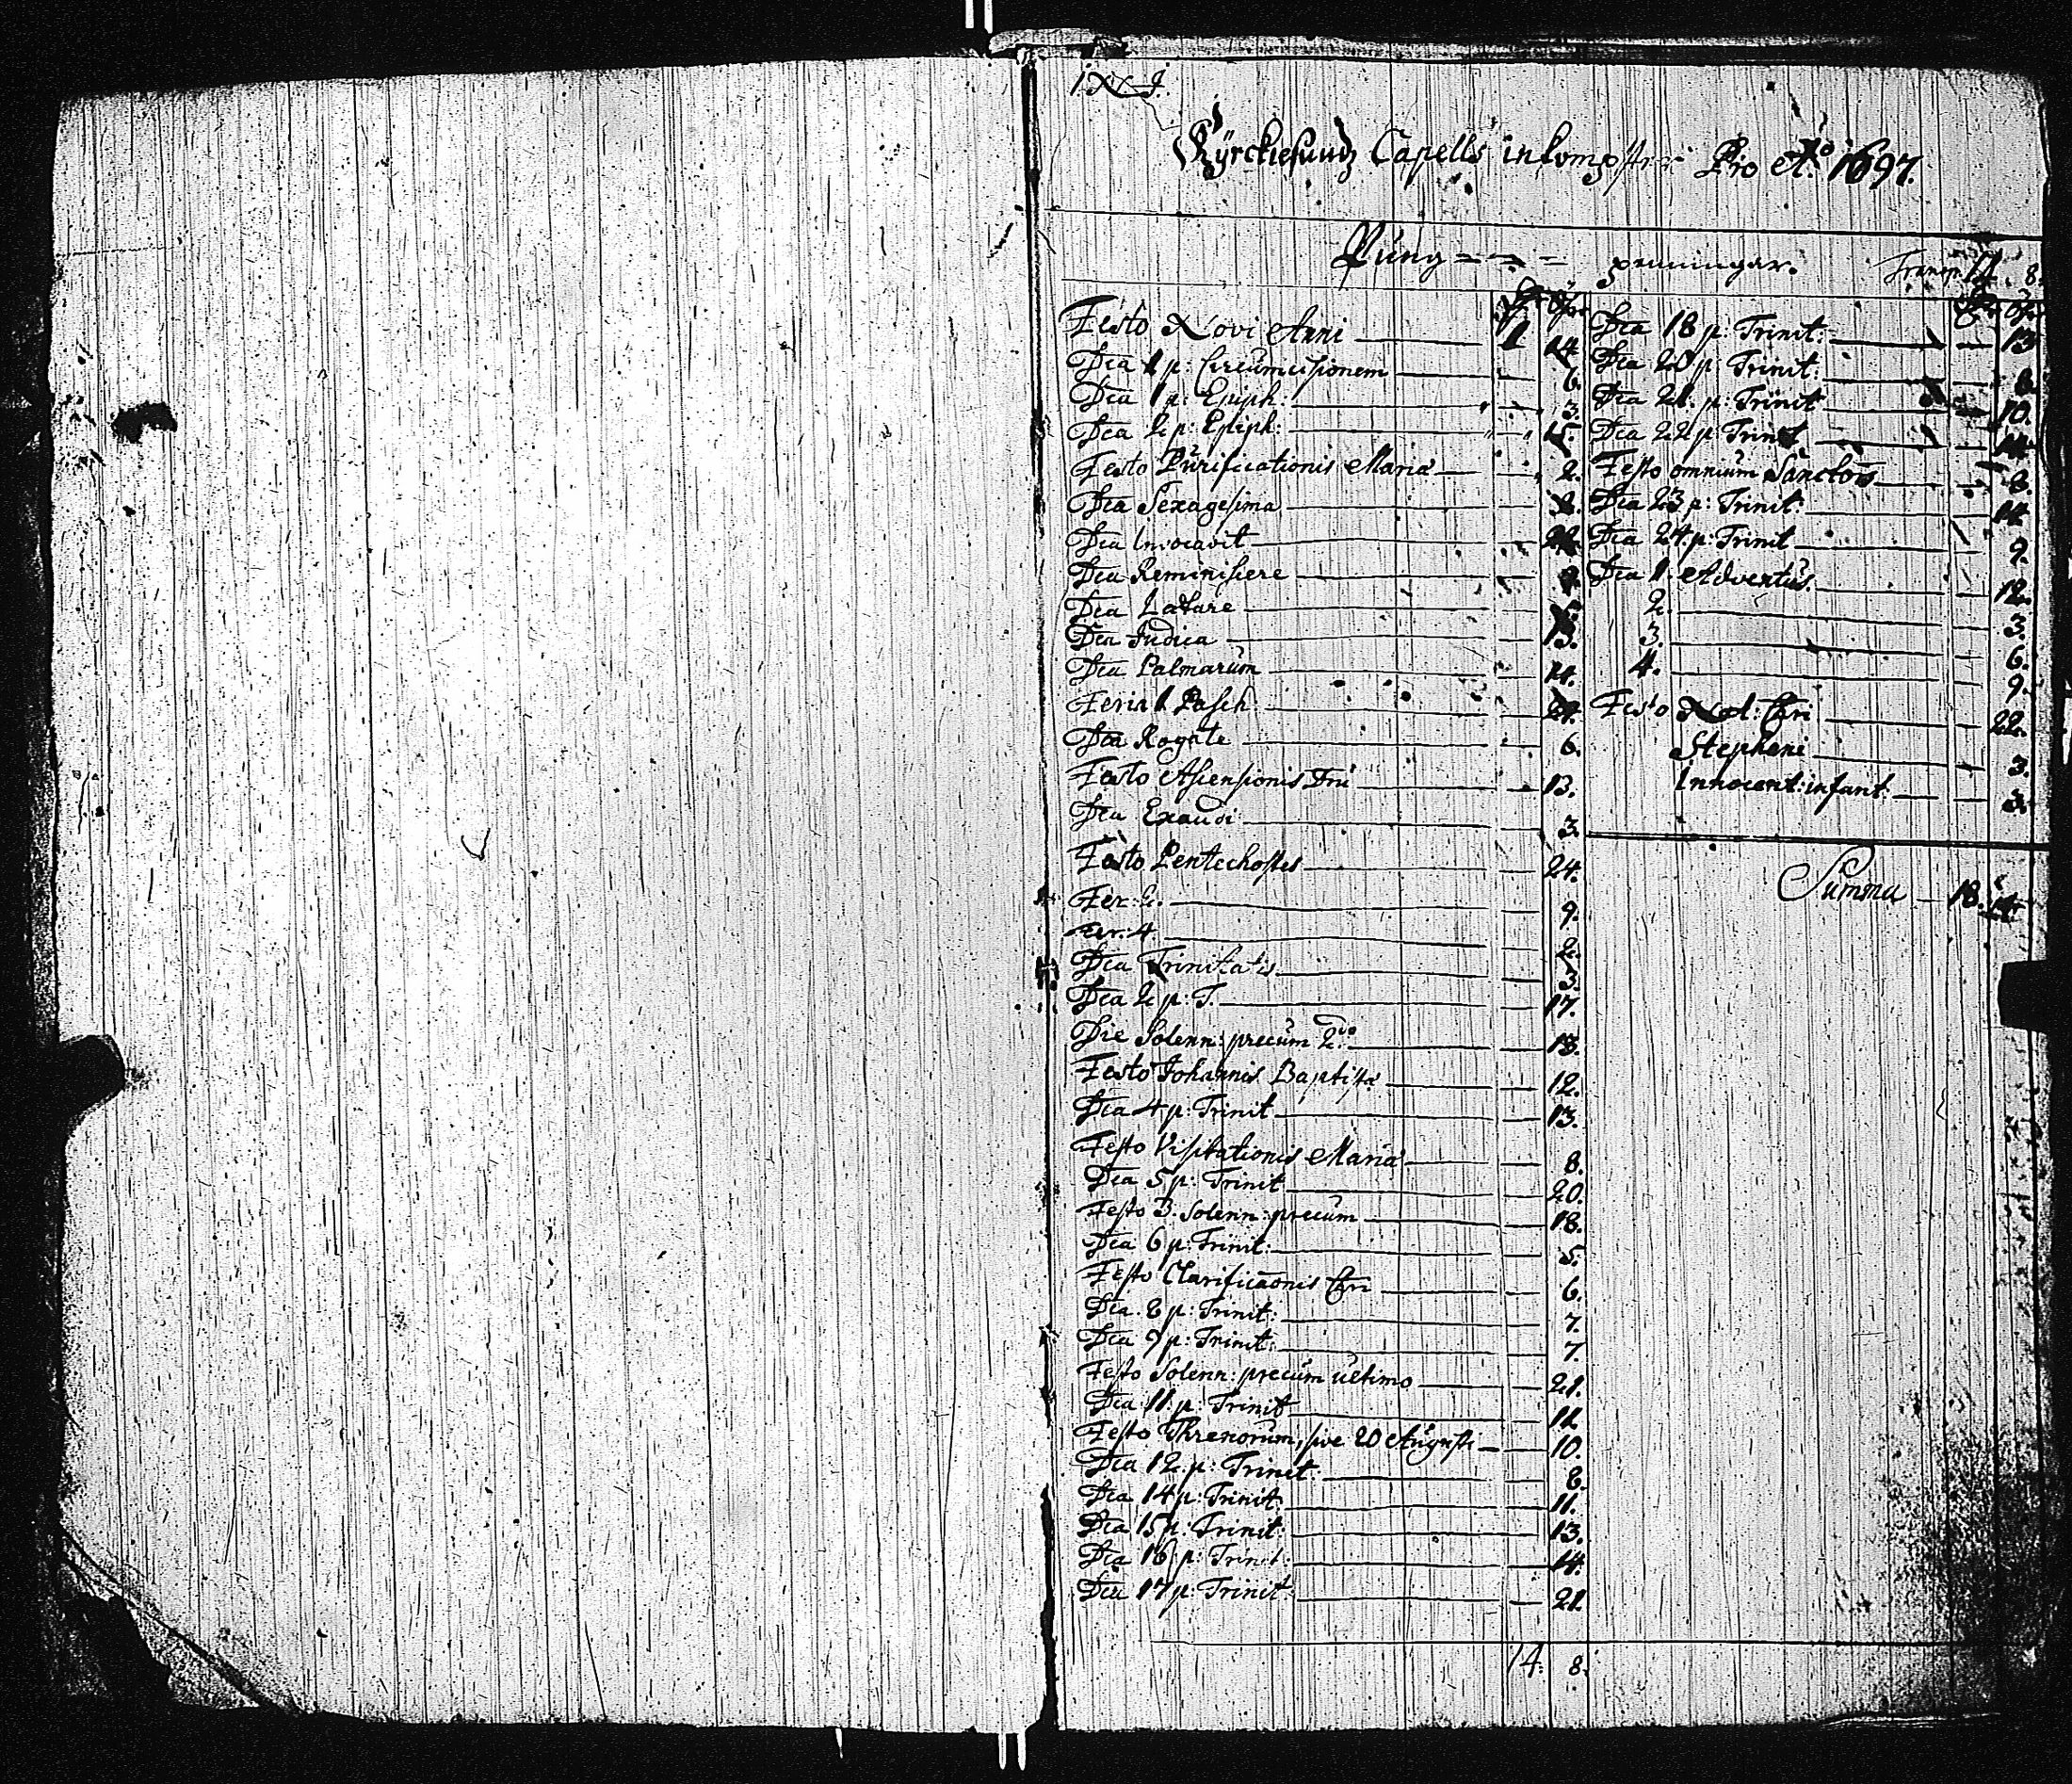 Kyrckiesundz Capells inkompster Pro Ao 1697.
Pung - - - penningar. Transp. 14. 8.
Festo Novi Anni 1 14
Dca 1 p: Circumcisionem 6.
Dca 1 p: Epiph: 3.
Dca 2 p: Epiph: 15.
Festo Purificationis Mariæ 2.
Dca Sexagesima
Dca Invocavit
Dca Reminiscere
Dca Lætare
Dca Judica 13.
Dca Palmarum 14.
Feria 1 Pasch
Dca Rogate 6.
Festo Ascensionis Dni 13.
Dca Exaudi 3.
Festo Pentechostes 24.
Fer: 2. 9.
Fer. 4 2.
Dca Trinitatis 3.
Dca 2 p: T. 17.
Die Solenn: precum 2do 18.
Festo Johannis Baptistæ 12.
Dca 4 p: Trinit 13.
Festo Visitationis Mariæ 8.
Dca 5 p: Trinit 20.
Festo 3. Solenn: precum 18.
Dca 6 p: Trinit: 5.
Festo Clarificaonis Chri 6.
Dca 8 p: Trinit: 7.
Dca 9 p: Trinit: 7.
Festo Solenn: precum ultimo 21.
Dca 11. p: Trinit
Festo Threnorum, sive 20 Augusti 10.
Dca 12 p: Trinit: 8.
Dca 14 p: Trinit: 11.
Dca 15 p: Trinit: 13.
Dca 16 p: Trinit: 14.
Dca 17 p: Trinit 21.
14. 8.
Dca 18 p: Trinit: 13
Dca 20 p Trinit: 8.
Dca 21. p: Trinit 10.
Dca 22 p: Trinit 14
Festo omnium Sanctor 8.
Dca 23 p: Trinit: 14
Dca 24 p: Trinit 9.
Dca 1. Adventus. 12.
2. 3.
3. 6.
4. 9.
Festo Nat: Chri 22.
Stephani 3.
Innocent: infant: 3.
Summa 18. 14